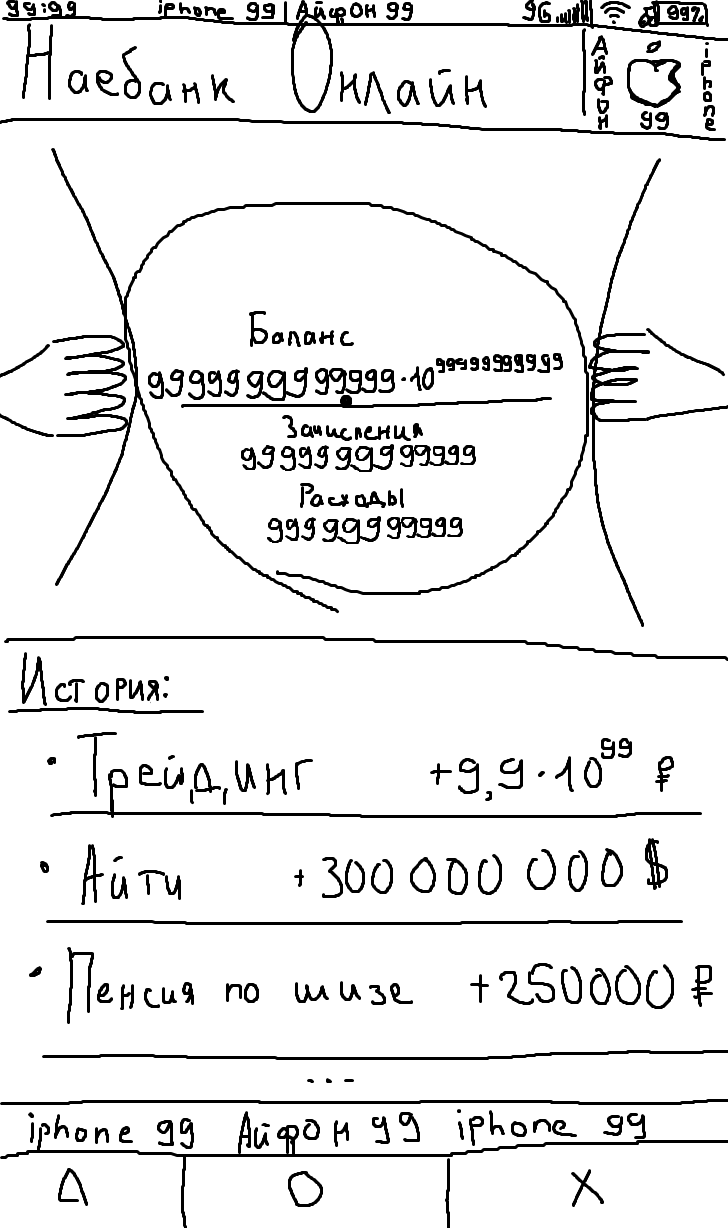 99:99 iphone 99 | Айфон 99 9G 99%
Наебанк Онлайн
Айфон
99
iphone
Баланс
9999999999999·10^99999999999
Зачисления
9999999999999
Расходы
99999999999
История:
· Трейдинг +9,9·10^99 ₽
· Айти +300 000 000 $
· Пенсия по шизе +250000 ₽
...
iphone 99 Айфон 99 iphone 99
Δ O X